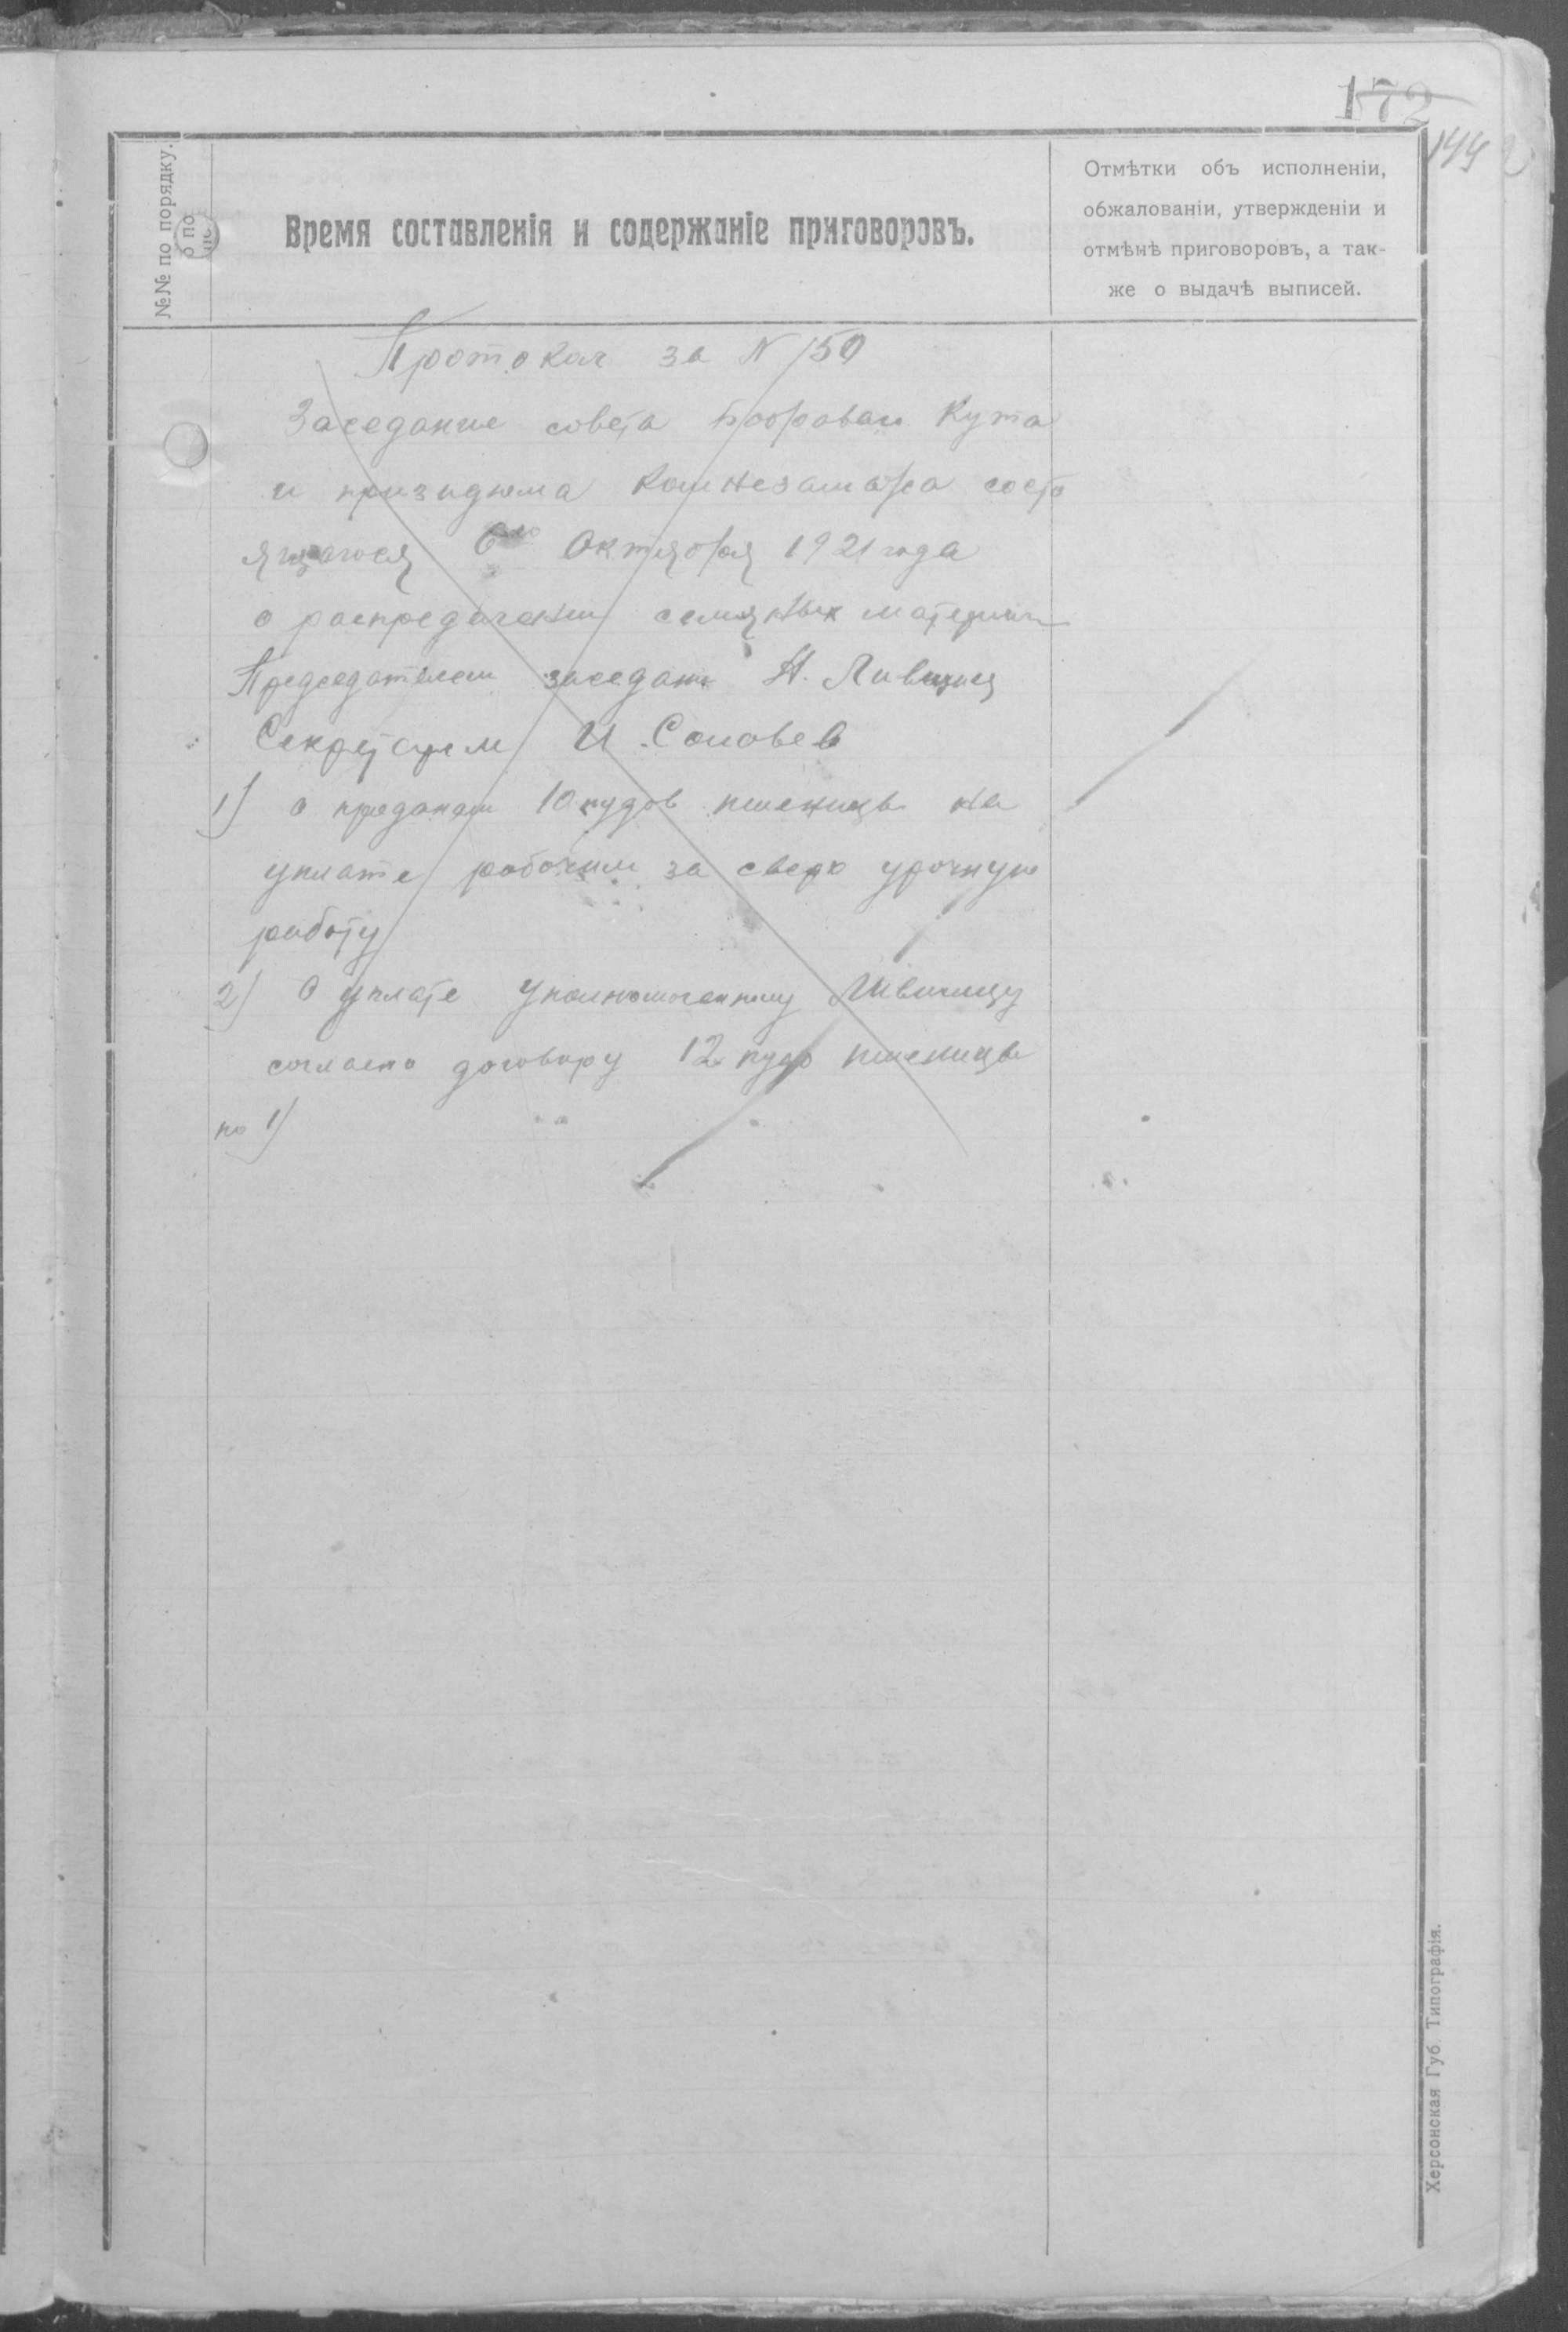 172
144
№№ по порядку.
Время составленія и содержаніе приговоровъ.
Отмѣтки объ исполненіи,
обжалованіи, утвержденіи и
отмѣнѣ приговоровъ, а так-
же о выдачѣ выписей.
Протокол за N 150
Заседание совета Бобровои Кута
и призидюма Комнезаможа состо
ящагося 6го Октября 1921 года
о распределении семяных материал
Председателем заседани Н. Лившиц
Секретарем И. Соловьев
1) о продании 10 пудов пшеницы на
уплате рабочим за сверх урочную
работу
2) О уплате Уполномоченному Лившицу
согласно договору 12 пудо пшеницы
по 1)
Херсонская Губ. Типографія.